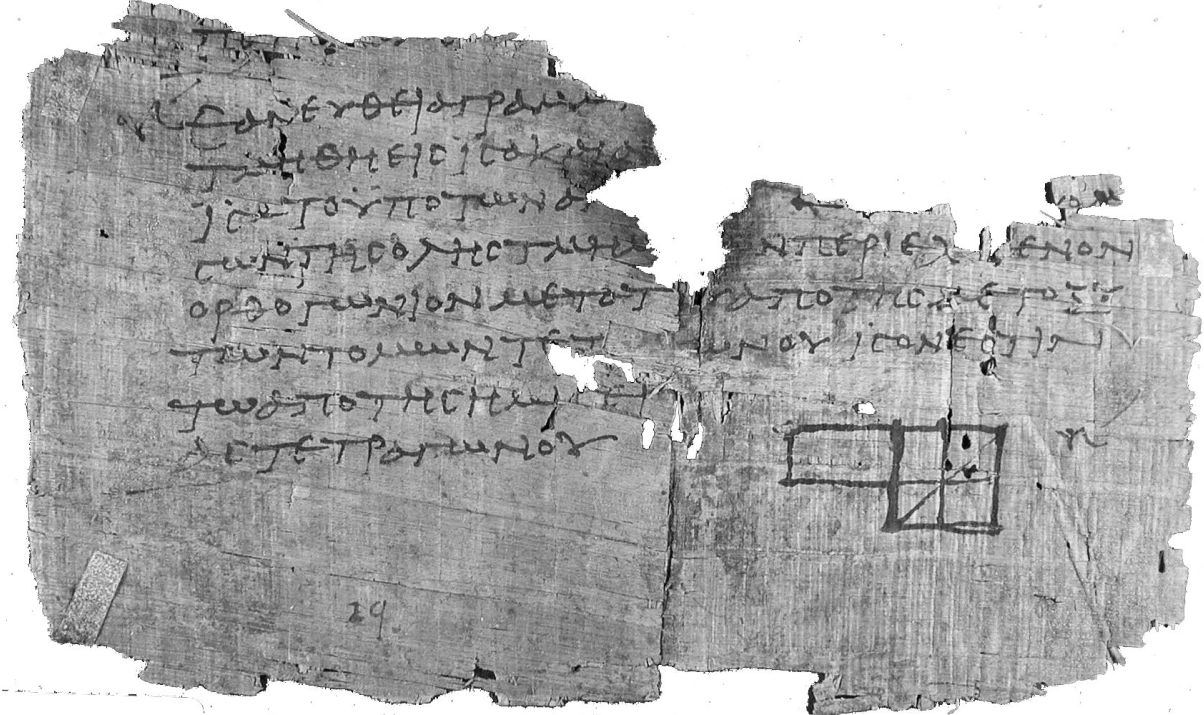 ΕΑΝΕΥΘΕΙΑΓΡΑΜ
ΤΜΗΘΗΕΙϹΙϹΑΚΑΙΑ
ΙϹΑΤΟΫΠΟΤΩΝΑ
ϹΩΝΤΗϹΟΛΗϹΤΜΗΜ ΝΠΕΡΙΕΧ ΕΝΟΝ
ΟΡΘΟΓΩΝΙΟΝΜΕΤΑΤ ΑΠΟΤΗϹΜΕΤΑΞΥ
ΤΩΝΤΟΜΩΝΤΕΤ ΩΝΟΥ ΙϹΟΝΕϹΤΙΝ
ΤΩΑΠΟΤΗϹΗΜΙϹΙ
ΑϹΤΕΤΡΑΓΩΝΟΥ
29